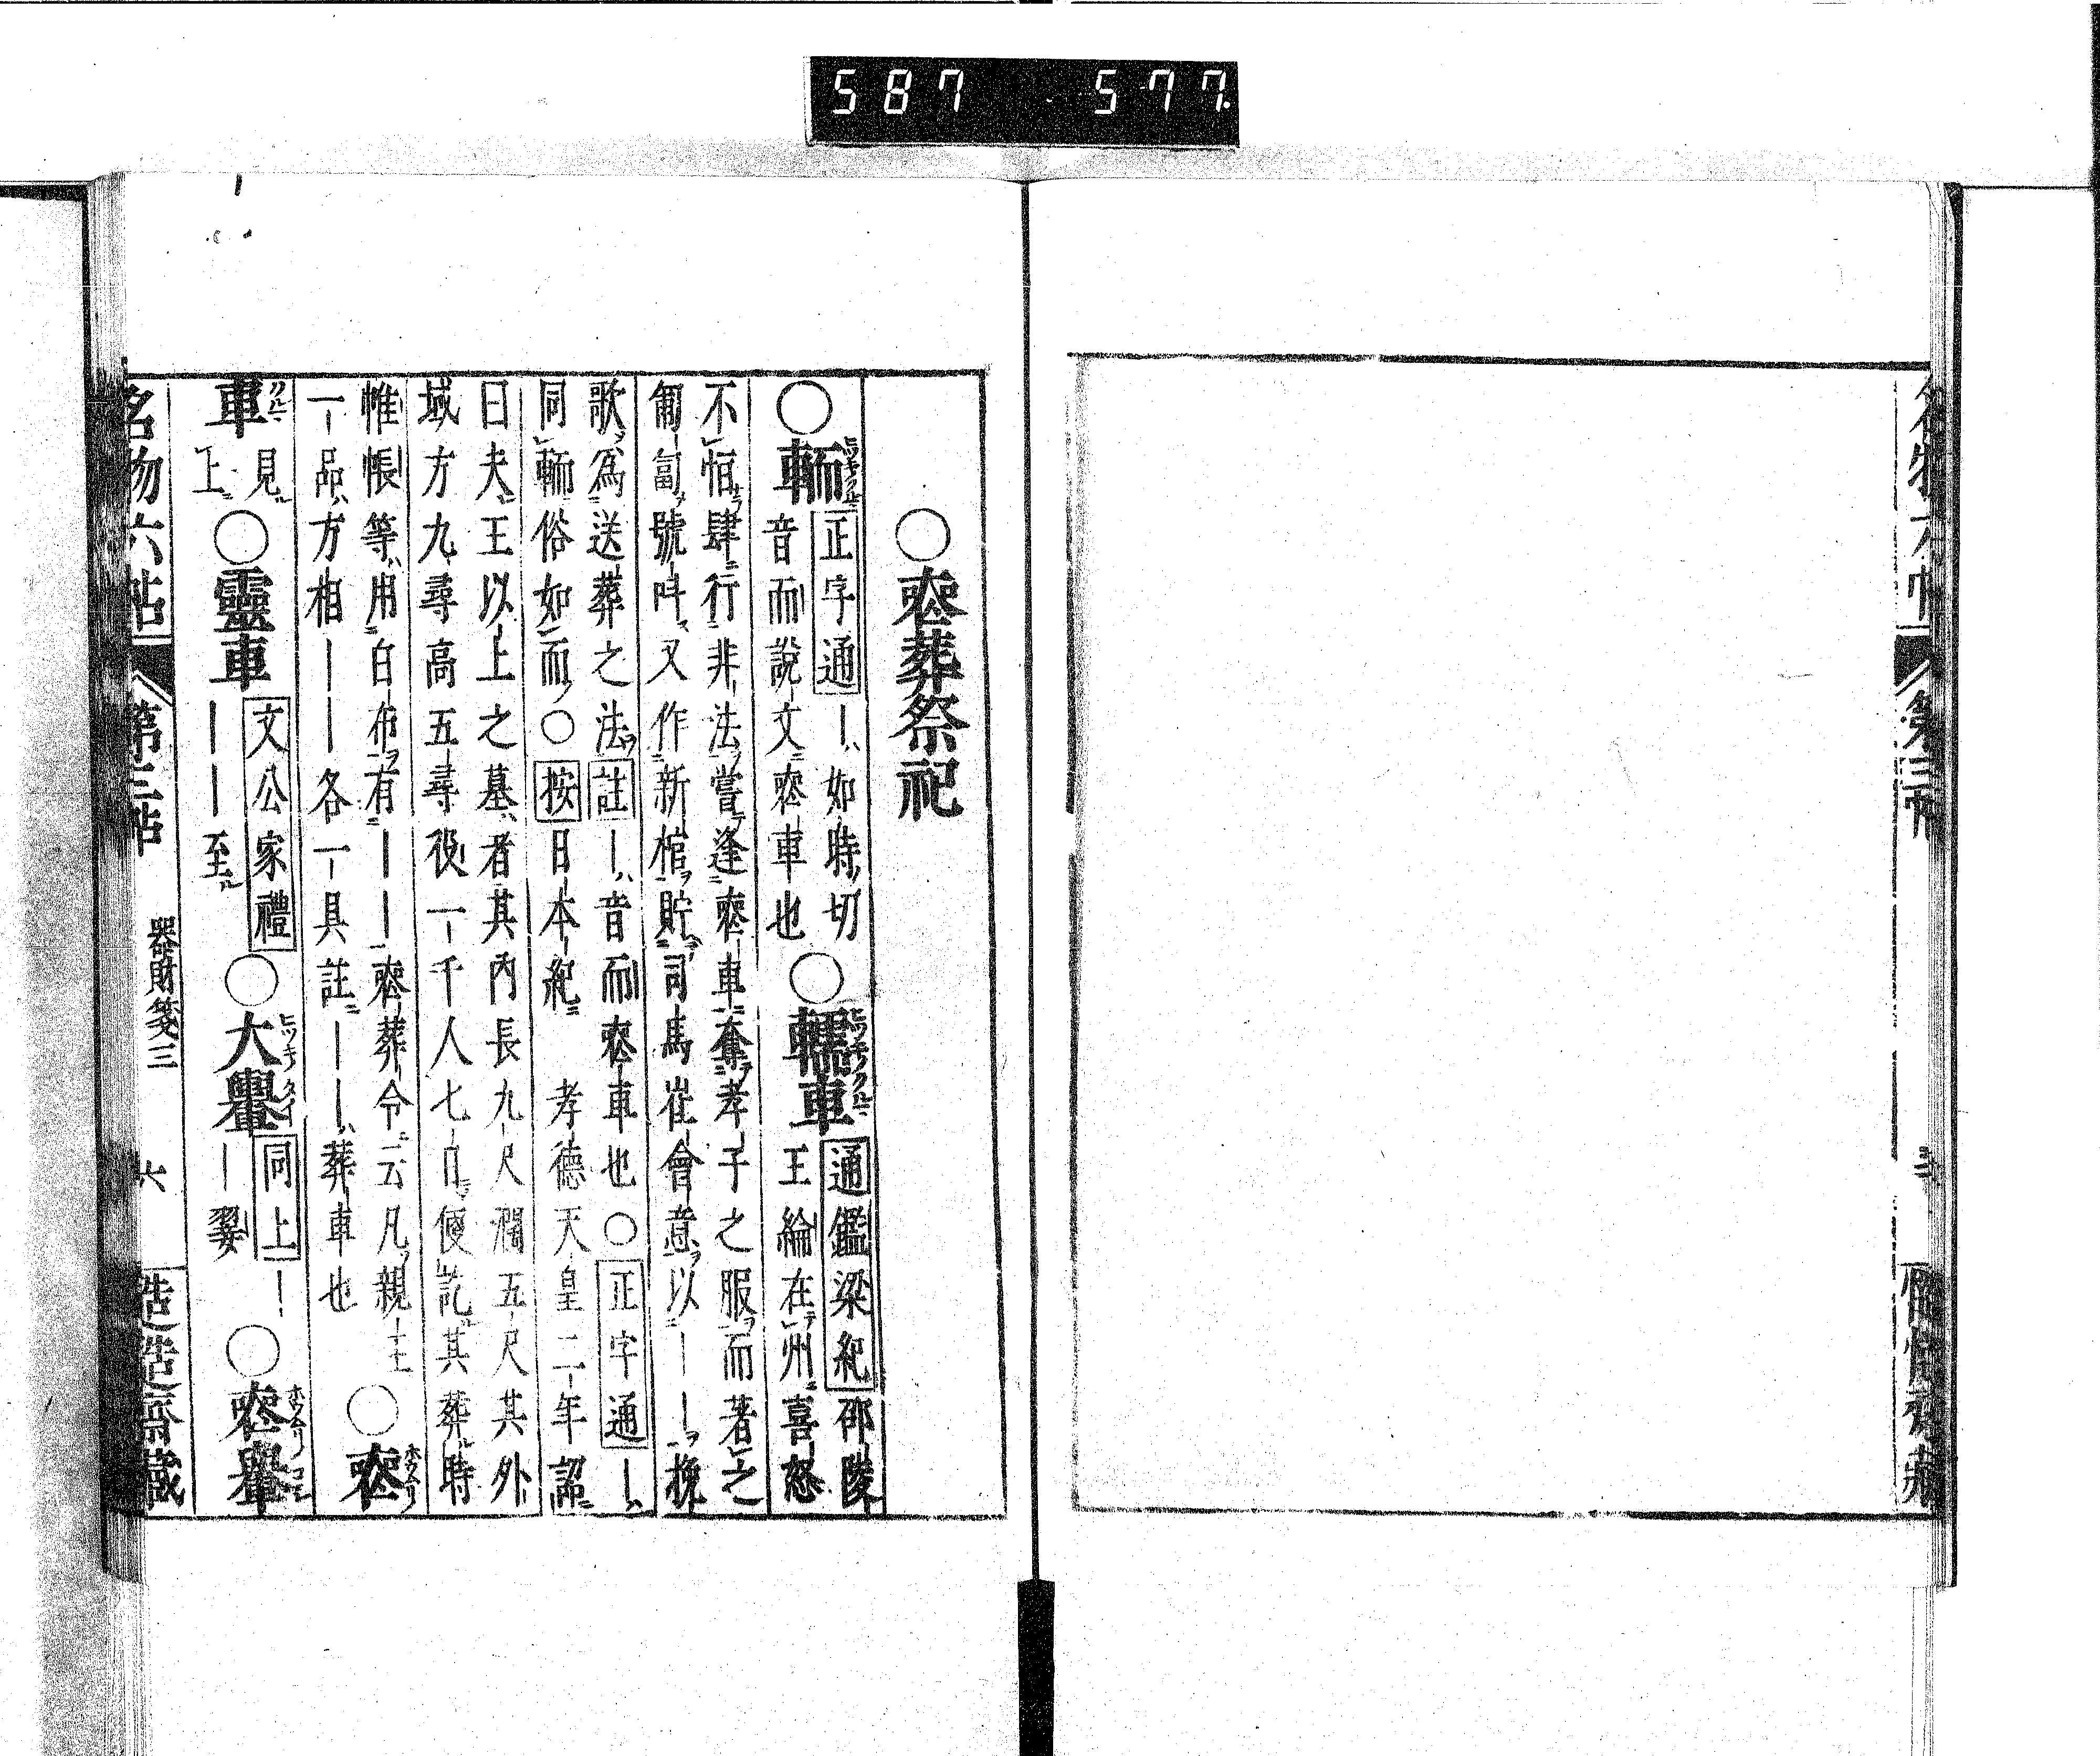 587 577
名物六帖 第三帖
〇喪葬祭祀
〇輀 正字通 ｜如時切
音而說文喪車也 〇轜車 通鑑梁紀 邵陵
王綸在州喜怒
不恒肆行非法嘗逢喪車奪孝子之服而著之
匍匐號叫又作新棺貯司馬崔會意以｜｜挽
歌為送葬之法 註 ｜音而喪車也〇 正字通 ｜
同輀俗如而〇 按 日本紀 孝德天皇二年詔
曰夫王以上之墓者其內長九尺濶五尺其外
域方九尋高五尋役一千人七日使訖其葬時
帷帳等用白布有｜｜喪葬令云凡親王
一品方相｜｜各一具註｜｜葬車也 〇喪
車 見上 〇靈車 文公家禮 ｜｜至 〇大轝 同上 ｜｜翣 〇喪轝
名物六帖 第三帖 器財箋三 六